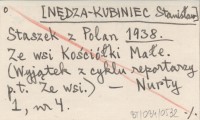 [NĘDZA-KUBINIEC Stanisław]
Staszek z Polan 1938.
Ze wsi Kościółki Małe.
(Wyjątek z cyklu reportarzy
p.t. Ze wsi.) — Nurty
1, nr 4.